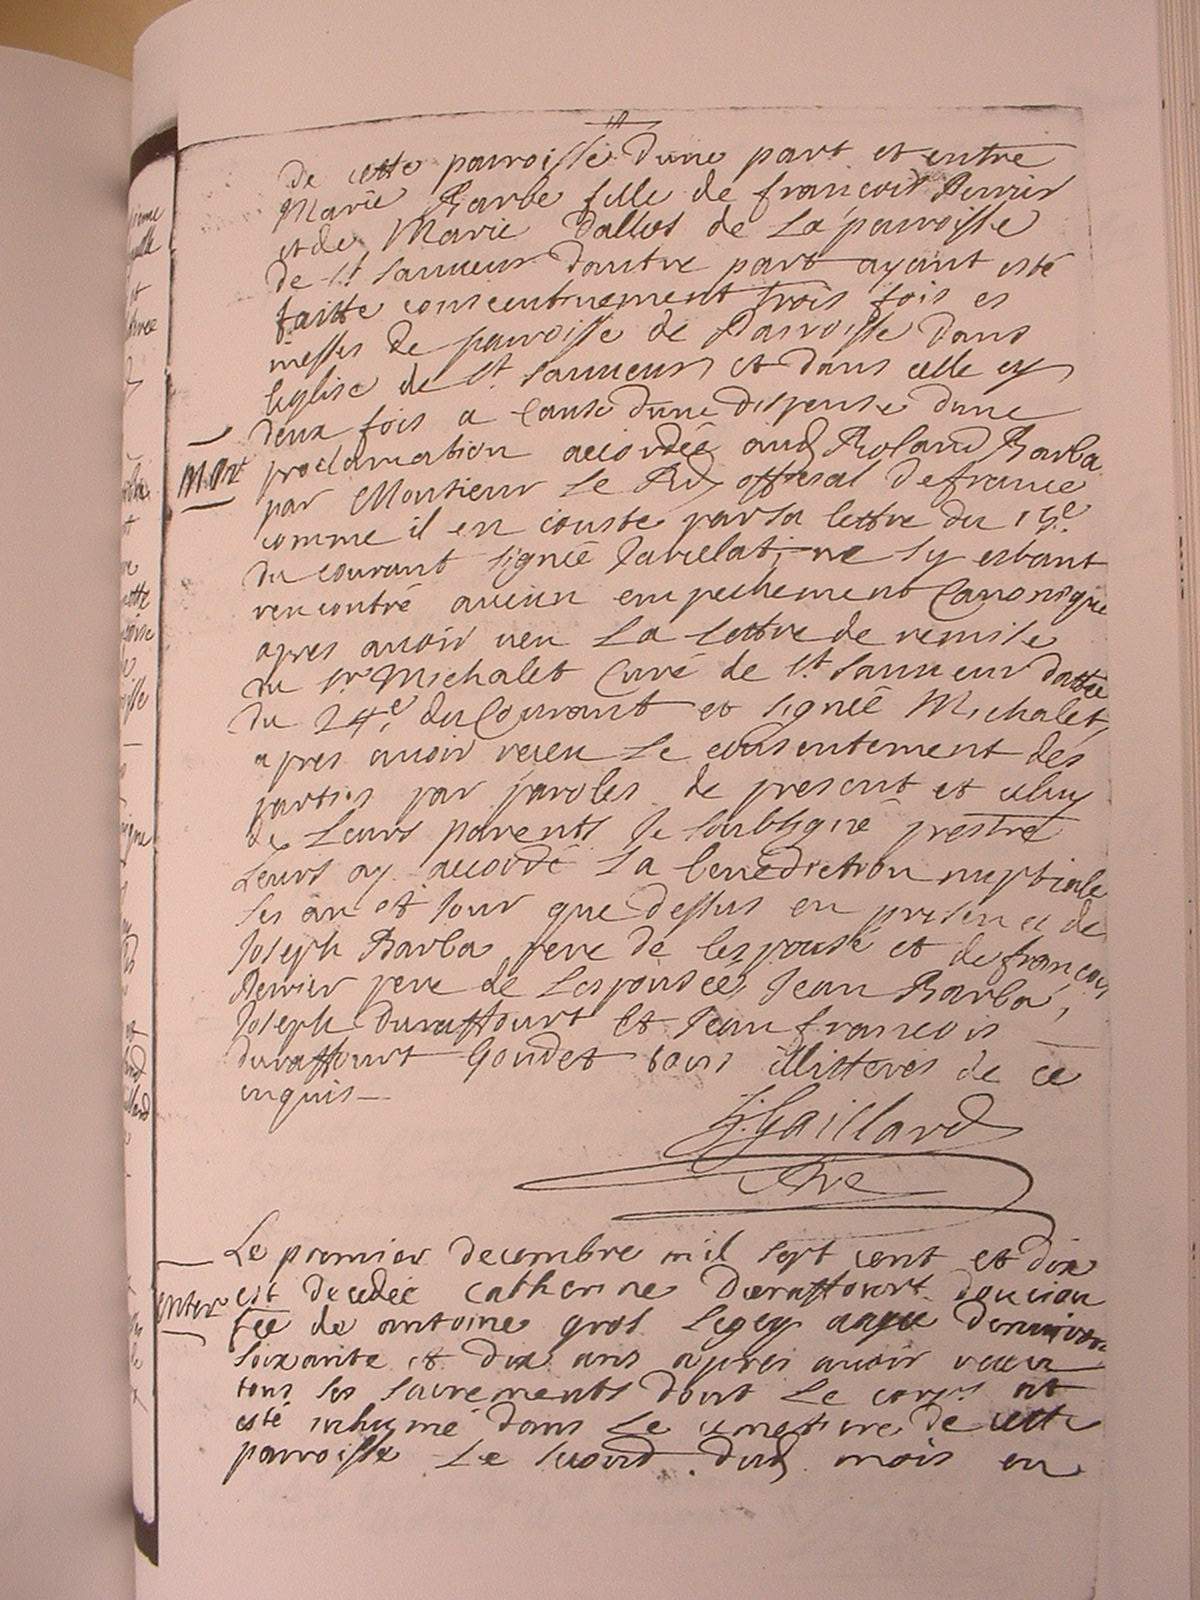 de cette parroisse dune part et entre
Marie Barbe fille de francois Perrier
et de Marie Dallos de La parroisse
de St Sauueur dautre part ayant esté
faitte consecutiuement trois fois es
messes de parroisse de Parroisse dans
leglise de St Sauueur et dans celle cy
deux fois a cause dune dispense dune
Mar
proclamation accordée aud Roland Barba
par Monsieur Le Rd official de france
comme il en conste par sa lettre du 15e
du courant signée Jauelat, ne sy estant
rencontré aucun empechement Canonique
apres auoir ueu La lettre de remise
du Sr Michalet Curé de St Sauueur dattée
du 24e du Courant et signée Michalet,
apres auoir receu Le consentement des
parties par paroles de present et celuy
de Leurs parents Je soubsigné prestre
Leurs ay accordé La benediction nuptiale
Les an et Jour que dessus en presence de
Joseph Barba pere de lespousé et de francois
Perrier pere de Lespousée, Jean Barba,
Joseph Duraffourt et Jean francois
duraffourt Goudet tous illitteres de ce
enquis
J. Gaillard
Ptre
Le premier decembre mil sept cent et dix
enter
est decedée Catherine Duraffourt
de antoine gros Legey aagée denuiron
soixante et dix ans apres auoir receu
tous les sacrements dont Le corps at
esté inhumé dans Le cimetiere de cette
parroisse Le second dud mois en